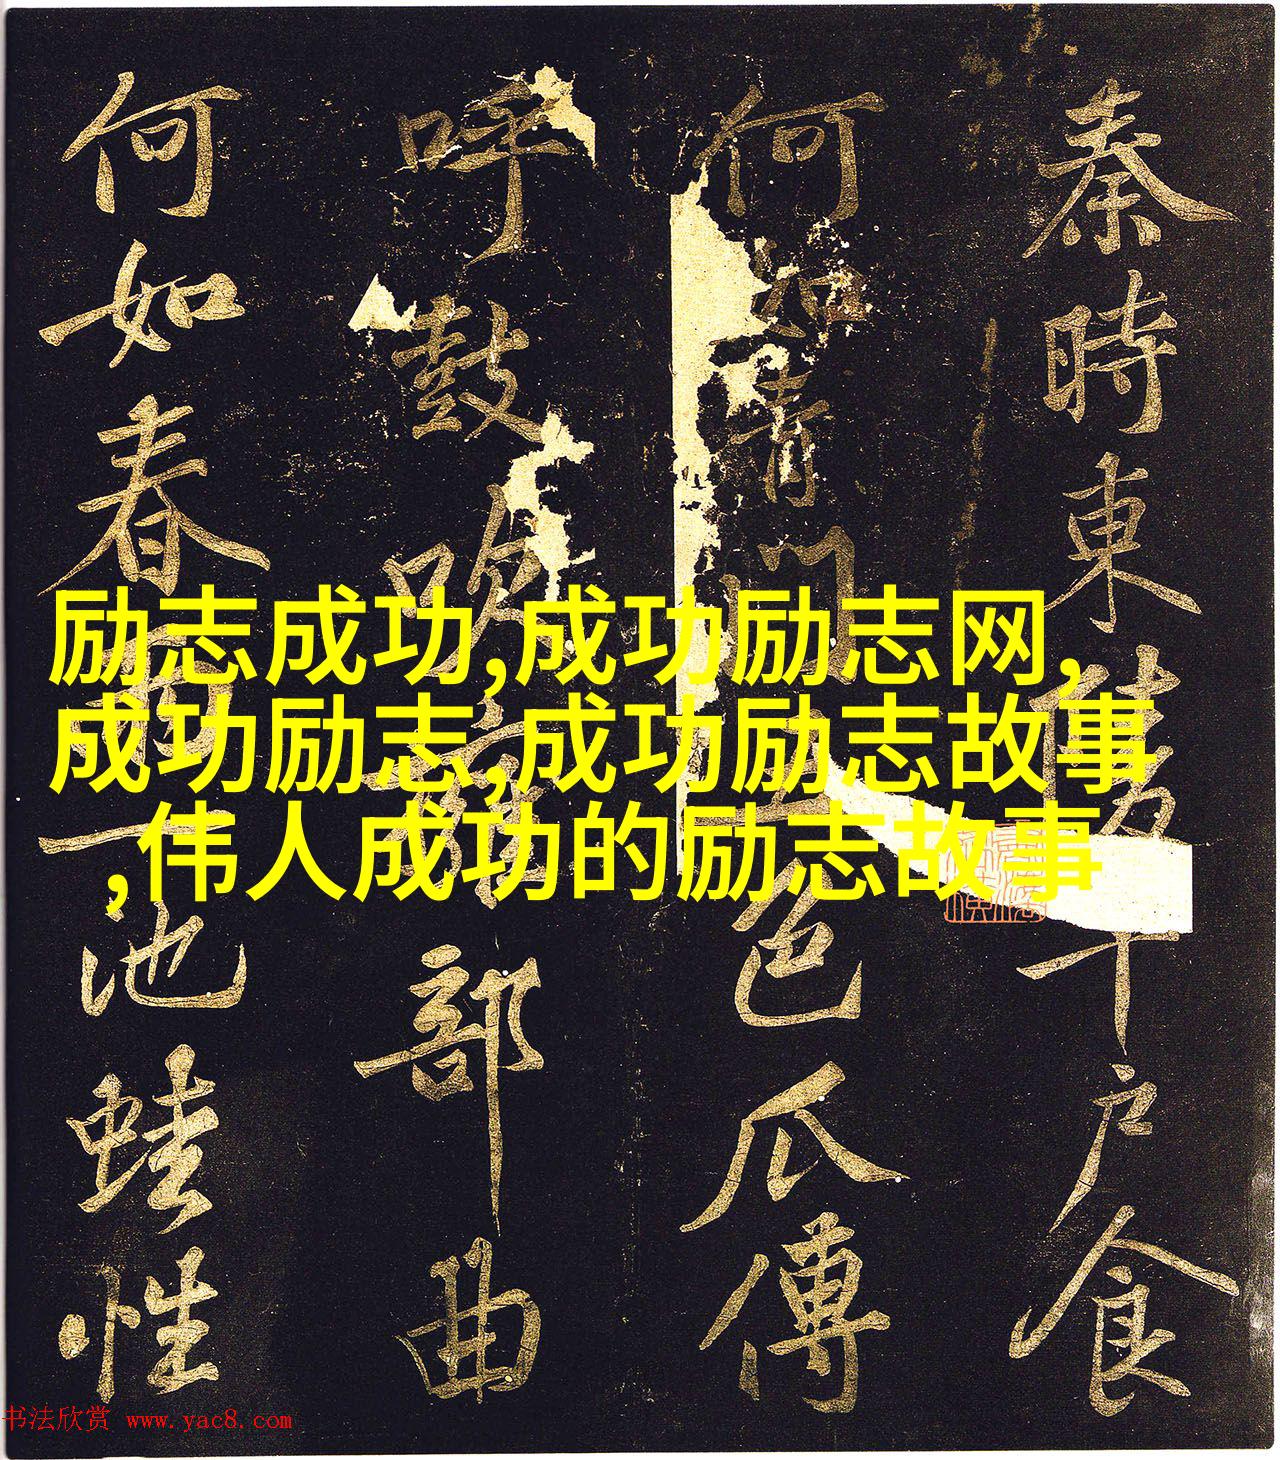 励志成功,成功励志网,
成功励志,成功励志故事
,伟人成功的励志故事
秦時東陵千戶食
何如青門五色瓜傳
呼鼓吹擁部曲
何如春雨一池蛙性
书法欣赏 www.yac8.com